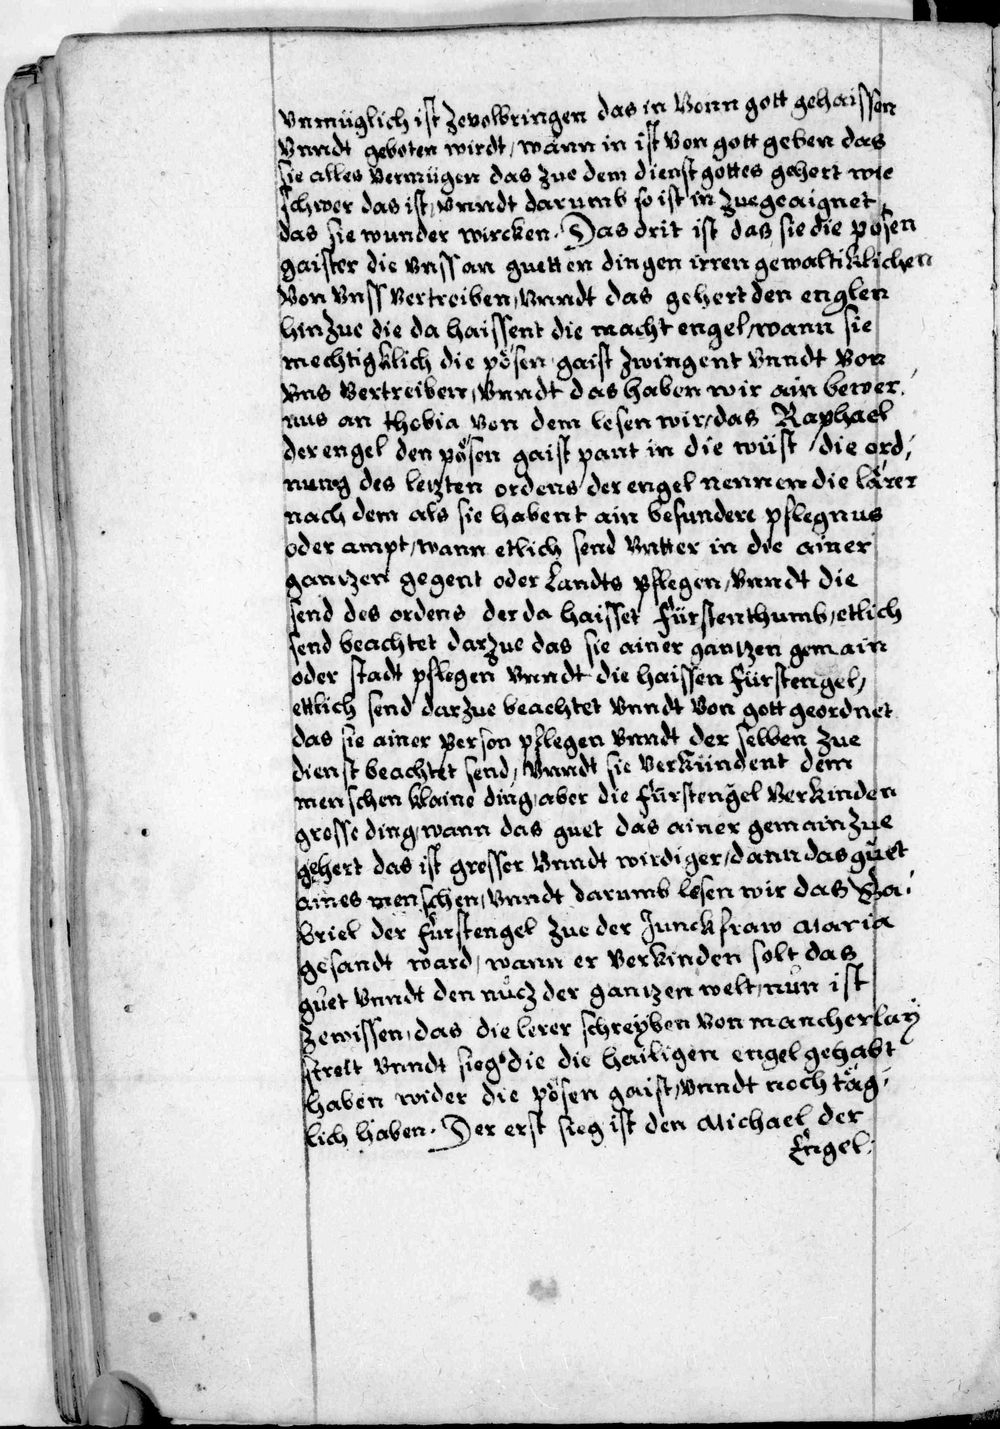 vnmüglich ist zevolbringen das in vonn gott gehaissen
vnndt geboten wirdt, wann in ist von gott geben das
sie alles vermügen das zue dem dienst gottes gehert wie
schwer das ist, vnndt darumb so ist in zuegeaignet,
das sie wunder wircken. Das drit ist das sie die pösen
gaister die vnss an guetten dingen irren gewaltiklichen
von vnss vertreiben, vnndt das gehert den englen
hinzue die da haissent die macht engel, wann sie
mechtigklich die pösen gaist zwingent vnndt von
vns vertreiben, vnndt das haben wir ain bewer,
nus an thobia von dem lesen wir, das Raphael
der engel den pösen gaist pant in die wüst, die ord,
nung des letzten ordens der engel nennen die lärer
nach dem als sie habent ain besundere pflegnus
oder ampt, wann etlich send vntter in die ainer
gantzen gegent oder Landts pflegen, vnndt die
send des ordens der da haisset Fürstenthumb, etlich
send beachtet darzue das sie ainer gantzen gemain
oder stadt pflegen vnndt die haissen Fürstengel,
ettlich send darzue beachtet vnndt von gott geordnet
das sie ainer person pflegen vnndt der selben zue
dienst beachtet send, vnndt sie verkündent dem
menschen klaine ding, aber die Fürstengel verkinden
grosse ding, wann das guet das ainer gemain zue
gehert das ist grosser vnndt wirdiger, dann das guet
aines menschen, vnndt darumb lesen wir das Ga,
briel der fürstengel zue der Junckfraw Maria
gesandt ward, wann er verkinden solt das
guet vnndt den nucz der gantzen welt, nun ist
zewissen, das die lerer schreyben von mancherlay
streit vnndt sieg die die hailigen engel gehabt
haben wider die pösen gaist, vnndt noch täg,
lich haben. Der erst sieg ist den Michael der
Engel.